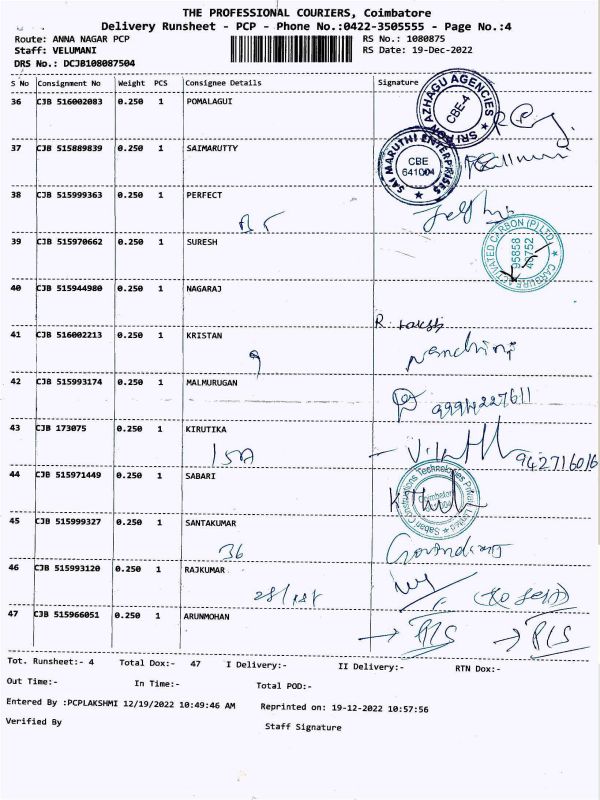 THE PROFESSIONAL COURIERS, Coimbatore
Delivery Runsheet - PCP - Phone No.:0422-3505555 - Page No.:4
Route: ANNA NAGAR PCP RS No.: 1080875
Staff: VELUMANI RS Date: 19-Dec-2022
DRS No.: DCJB108087504
S No Consignment No Weight PCS Consignee Details Signature
36 CJB 516002083 0.250 1 POMALAGUI
SRI AZHAGU AGENCIES CBE-4
37 CJB 515889839 0.250 1 SAIMARUTTY
SAI MARUTHI ENTERPRISES CBE 641004
38 CJB 515999363 0.250 1 PERFECT
39 CJB 515970662 0.250 1 SURESH
CARBURE ACTIVATED CARBON (P) LTD 95858
40 CJB 515944980 0.250 1 NAGARAJ
R.
41 CJB 516002213 0.250 1 KRISTAN
9
42 CJB 515993174 0.250 1 MALMURUGAN
43 CJB 173075 0.250 1 KIRUTIKA
15A 942716016
44 CJB 515971449 0.250 1 SABARI
Constructions Technologies Private Limited Coimbatore
45 CJB 515999327 0.250 1 SANTAKUMAR
36
46 CJB 515993120 0.250 1 RAJKUMAR
47 CJB 515966051 0.250 1 ARUNMOHAN
Tot. Runsheet:- 4 Total Dox:- 47 I Delivery:- II Delivery:- RTN Dox:-
Out Time:- In Time:- Total POD:-
Entered By :PCPLAKSHMI 12/19/2022 10:49:46 AM Reprinted on: 19-12-2022 10:57:56
Verified By Staff Signature